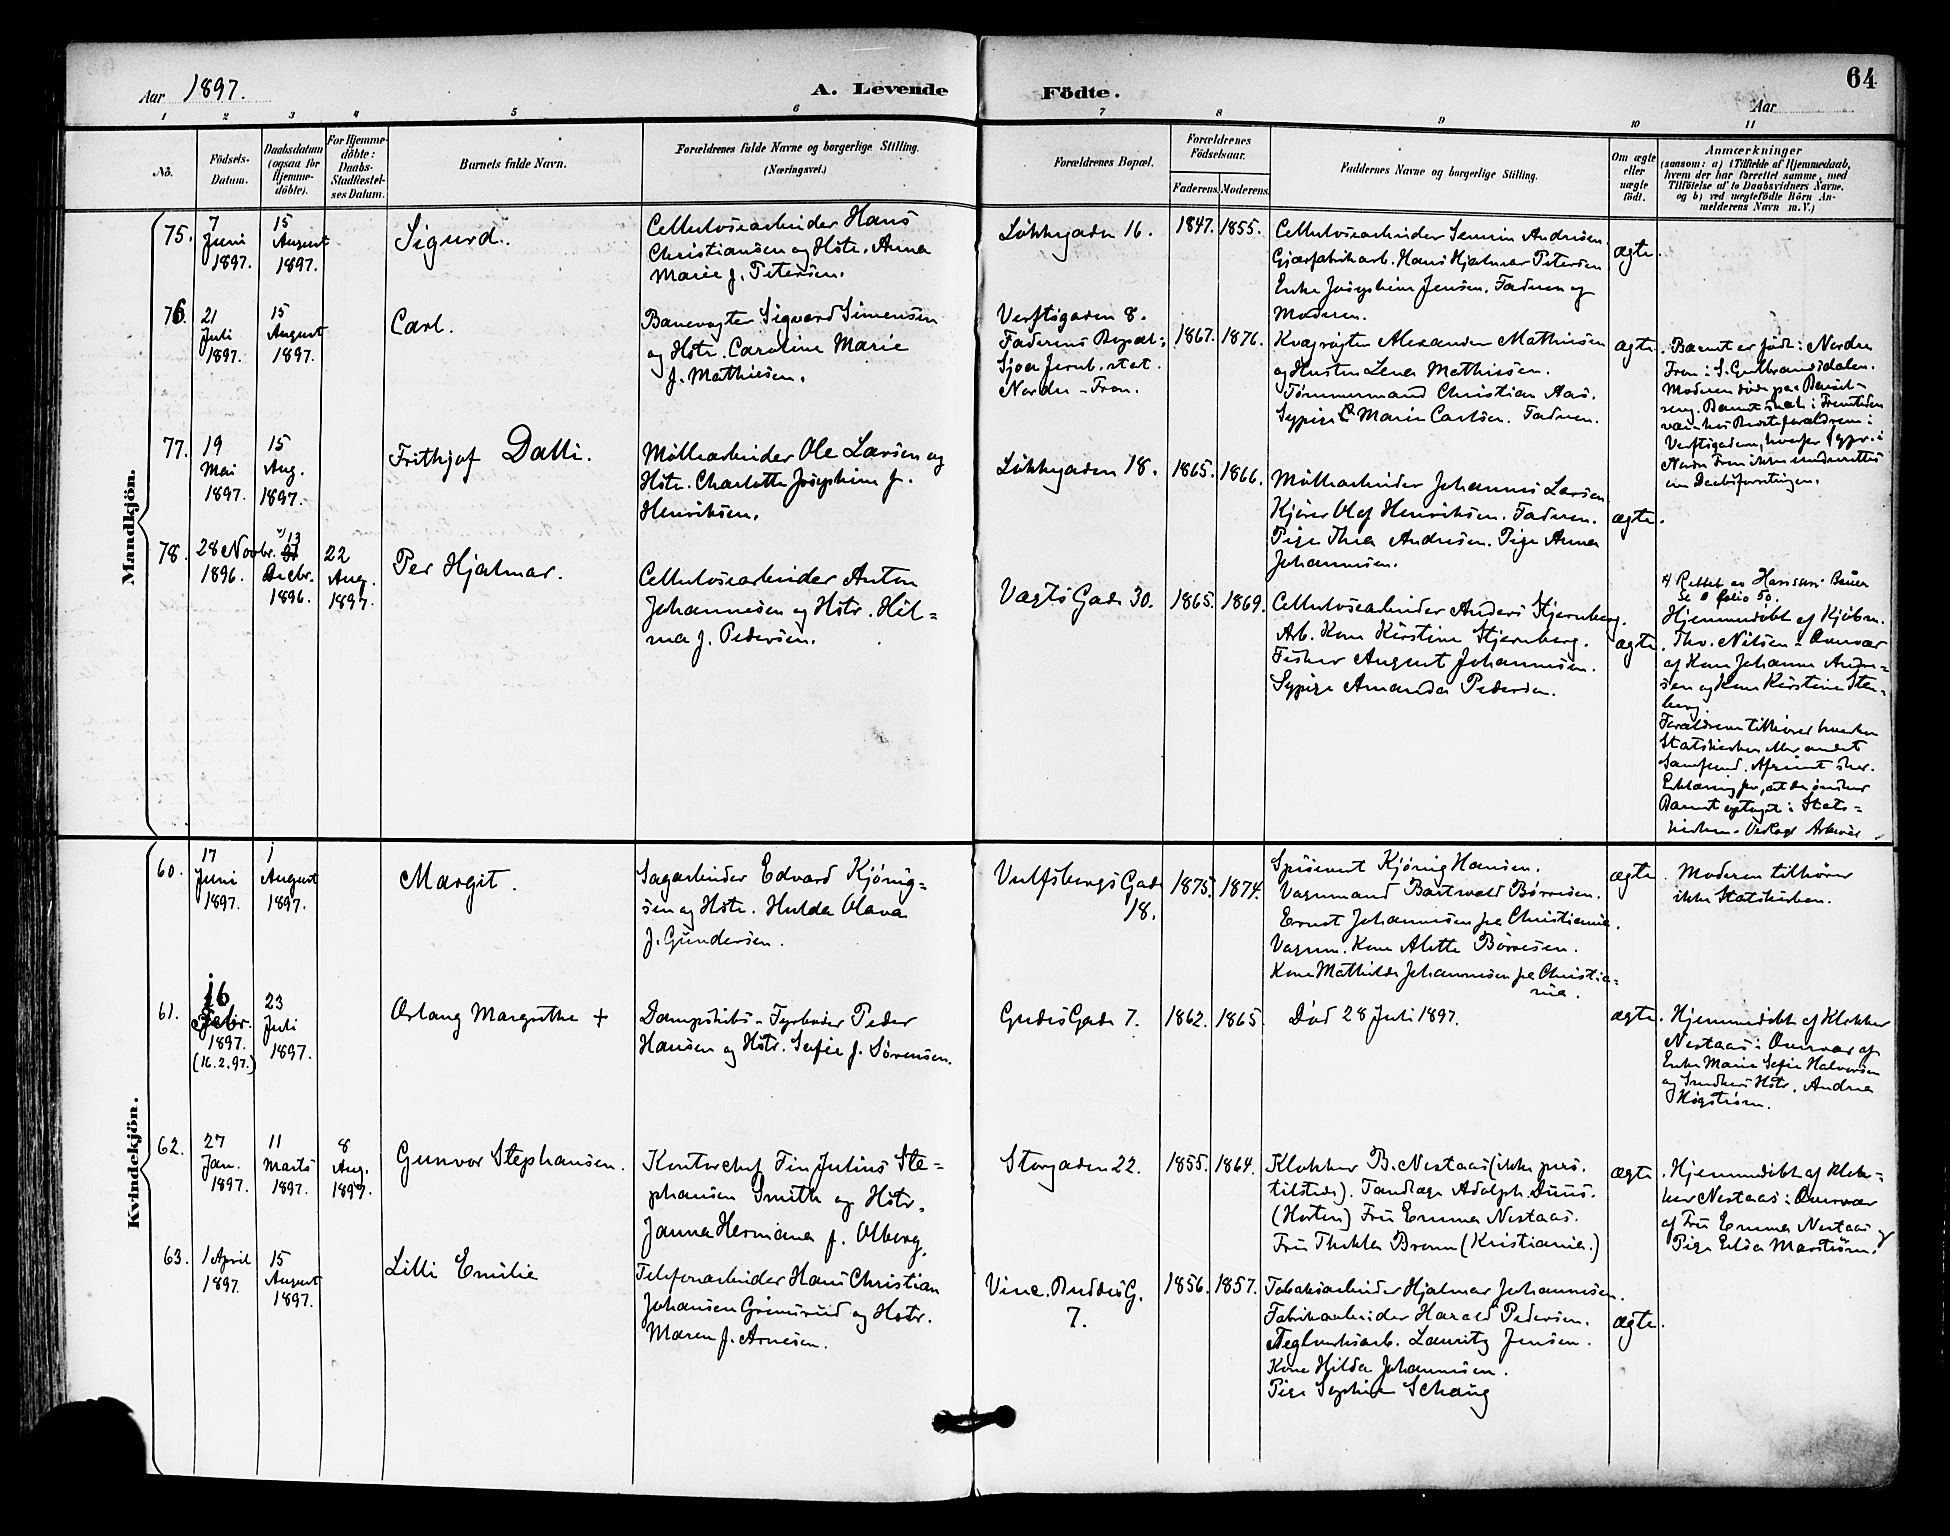 Aar 1897.
A. Levende Födte.
64
Aar
1 2 3 4 5 6 7 8 9 10 11
No.
Födsels-Datum.
Daabsdatum (ogsaa for Hjemme-döbte).
For Hjemme-döbte: Daabs-Stadfæstel-ses Datum.
Barnets fulde Navn.
Forældrenes fulde Navne og borgerlige Stilling.
(Næringsvei.)
Forældrenes Bopæl.
Forældrenes Födselsaar.
Faderens. Moderens.
Faddernes Navne og borgerlige Stilling.
Om ægte eller uægte født.
Anmærkninger
(saasom: a) i Tilfælde af Hjemmedaab,
hvem der har forrettet samme, med
Tilföielse af to Daabsvidners Navne,
og b) ved uægtefödte Börn An-
melderens Navn m.V.)
Mandkjön.
75.
7 Juni 1897.
15 August 1897.
Sigurd.
Cellulosearbeider Hans
Christiansen og Hstr. Anna
Marie f. Petersen.
Løkkegaden 16.
1847. 1855.
Cellulosearbeider Andersen.
Gjærfabrikarb. Hans Hjalmar Petersen
Enke Josephine Jensen. Faderen og
Moderen.
ægte.
76.
21 Juli 1897.
15 August 1897.
Carl.
Banevogter Sigvard Simensen
og Hstr. Caroline Marie
f. Mathiesen.
Verftsgaden 8.
Faderens Bopæl:
Sjoa Jernb. stat.
Nordre-Fron.
1867. 1876.
Kvægrøgter Alexander Mathiesen
og Hustru Lena Mathiesen.
Tømmermand Christian Aas.
Sypige Marie Carlsen. Faderen.
ægte.
Barnet er født i Nordre
Fron i S. Gudbrandsdalen.
Moderen døde paa Barsel-
seng. Barnet skal i Fremtiden
være hos Bedsteforældrene i
Verftsgaden, hvorfor Sgpr. i
Nordre Fron ikke underrettes
om Daabsforretningen.
77.
19 Mai 1897.
15 Aug. 1897.
Frithjof Dalli.
Møllearbeider Ole Larsen og
Hstr. Charlotte Josephine f.
Henriksen.
Løkkegaden 18.
1865. 1866.
Møllearbeider Johannes Larsen
Kjører Olaf Henriksen. Faderen.
Pige Thea Andresen. Pige Anna
Johannesen.
ægte.
78.
28 Novbr. 1896.
x) 13 Decbr. 1896.
22 Aug. 1897.
Per Hjalmar.
Cellulosearbeider Anton
Johannesen og Hstr. Hil-
ma f. Pedersen.
Vogts Gade 30.
1865. 1869.
Cellulosearbeider Anders Stjernberg.
Arb. Kone Kirstine Stjernberg.
Fisker August Johannesen.
Sypige Amanda Pedersen.
ægte.
x) Rettet av
folio 50.
Hjemmedøbt af Kjøbm.
Thv. Nilsen i Overvær
af Kone Johanne Andre-
sen og Kone Kirstine Sten-
berg.
Forældrene tilhører hverken
Statskirken eller andet
Samfund. Afgivet skr.
Erklæring for, at de ønsker
Barnet optaget i Stats-
kirken.
Kvindekjön.
60.
17 Juni 1897.
1 August 1897.
Margit.
Sagarbeider Edvard Kjønig-
sen og Hstr. Hulda Olava
f. Gundersen.
Vulfsbergs Gade
18.
1875. 1874.
Kjønig Hansen.
Vognmand Bartvald Børresen.
Ernst Johannesen fra Christiania.
Vognm. Kone Alette Børresen.
Kone Mathilde Johannesen fra Christia-
nia.
ægte.
Moderen tilhører
ikke Statskirken.
61.
16 Febr. 1897.
(16.2.97.)
23 Juli 1897.
Aslaug Margrethe +
Dampskibs-Fyrbøder Peder
Hansen og Hstr. Sofie f. Sørensen.
Gudes Gade 7.
1862. 1865.
Død 28 Juli 1897.
ægte.
Hjemmedøbt af Klokker
Nestaas i Overvær af
Enke Marie Sofie Halvorsen
og Snedkers Hstr. Andrea
Høgstrøm.
62.
27 Jan. 1897.
11 Marts 1897.
8 Aug. 1897.
Gunvor Stephansen.
Kontorchef Finn Julius Ste-
phansen Smith og Hstr.
Janna Hermana f. Olberg.
Storgaden 22.
1855. 1864.
Klokker B. Nestaas (ikke pers.
tilstede). Tandlæge Adolph Duus.
(Horten) Fru Emma Nestaas.
Fru Thekla Brown (Kristiania.)
ægte.
Hjemmedøbt af Klok-
ker Nestaas i Overvær
af Fru Emma Nestaas og
Pige Elda Marstrøm.
63.
1 April 1897.
15 August 1897.
Lilli Emilie
Telefonarbeider Hans Christian
Johansen Grimsrud og Hstr.
Maren f. Arnesen.
Vinc. Buddes G.
7.
1856. 1857.
Tobaksarbeider Hjalmar Johannesen.
Fabrikarbeider Harald Pedersen.
Teglverksarb. Lauritz Jensen.
Kone Hilda Johannesen.
Pige Sophie Schaug
ægte.